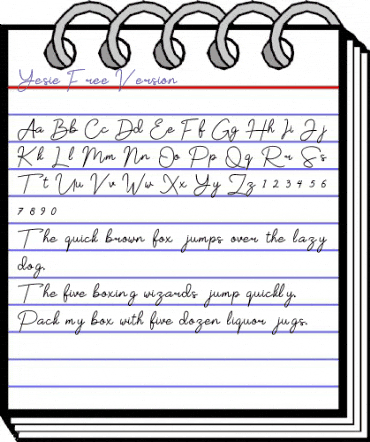 Yesie Free Version
Aa Bb Cc Dd Ee Ff Gg Hh Ii Jj
Kk Ll Mm Nn Oo Pp Qq Rr Ss
Tt Uu Vv Ww Xx Yy Zz 1 2 3 4 5 6
7 8 9 0
The quick brown fox jumps over the lazy
dog.
The five boxing wizards jump quickly.
Pack my box with five dozen liquor jugs.